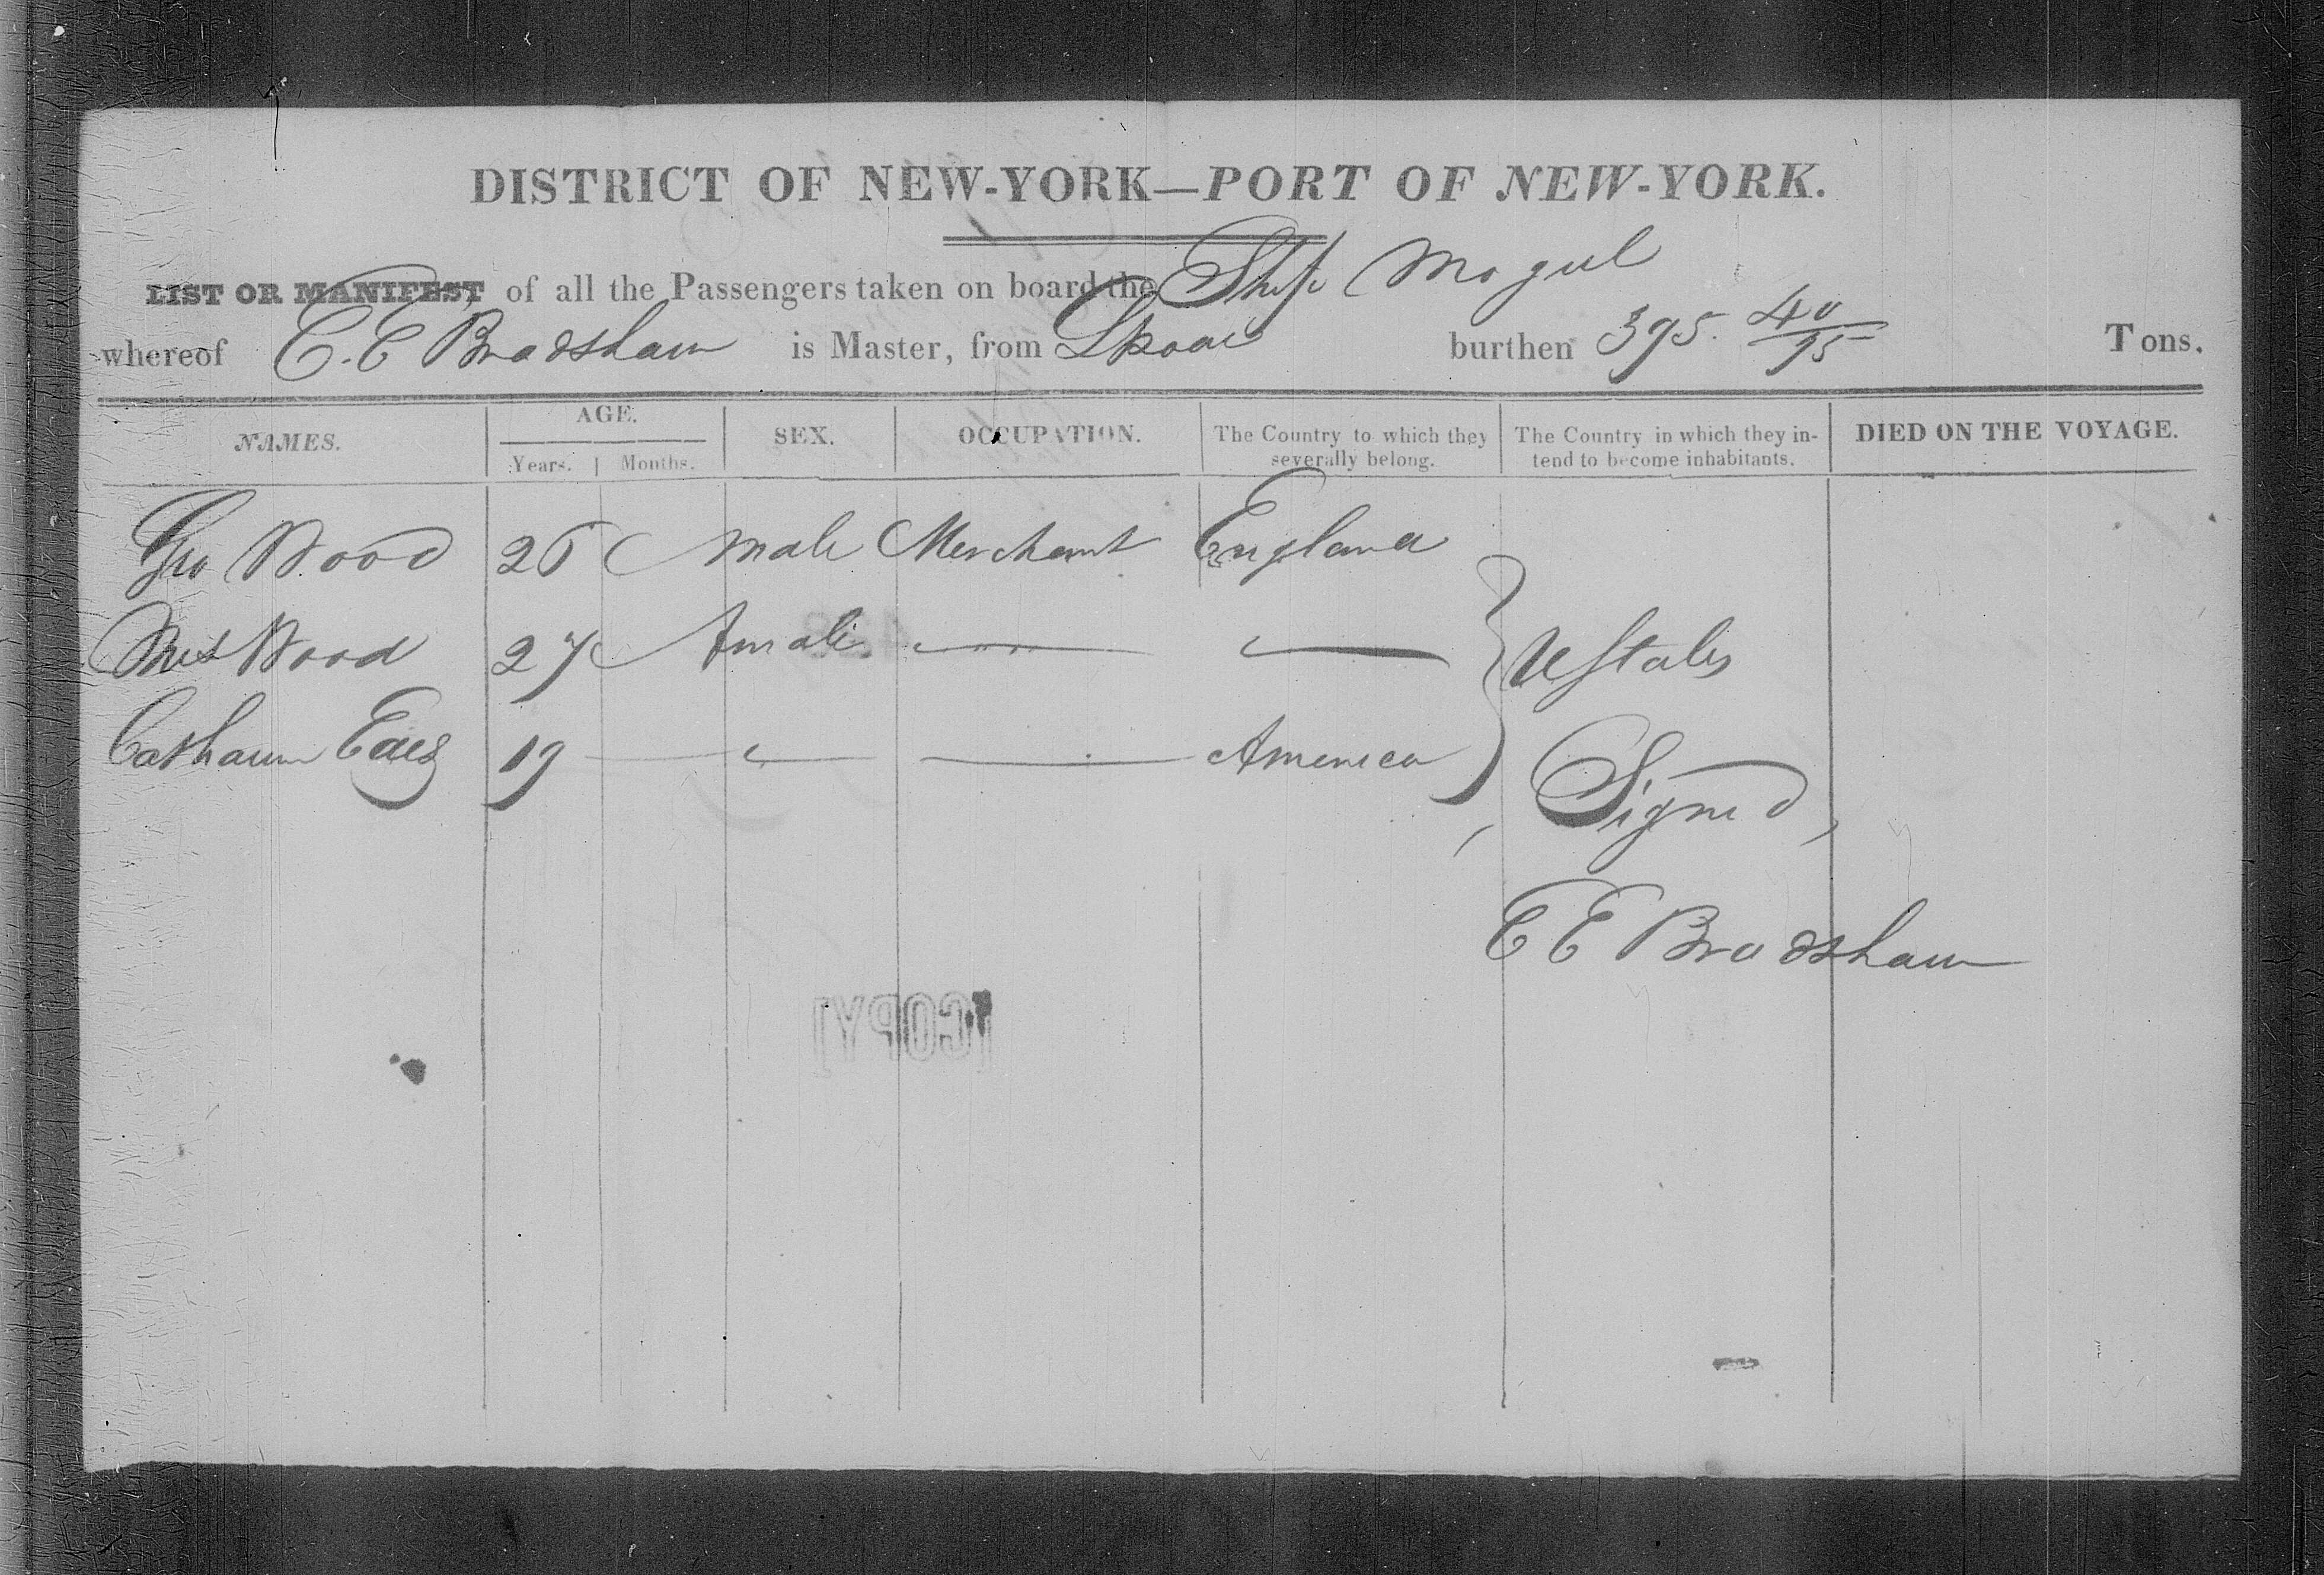 DISTRICT OF NEW-YORK—PORT OF NEW-YORK.
LIST OR MANIFEST of all the Passengers taken on board the Ship Mogul
whereof C. E Bradshaw is Master, from Lpool burthen 395. 40/95 Tons.
NAMES. AGE. SEX. OCCUPATION. The Country to which they severally belong. The Country in which they intend to become inhabitants. DIED ON THE VOYAGE.
Years. Months.
Geo Wood 26 Male Merchant England
Mrs Wood 27 Female
19 America
UStates
Signed
E E Bradshaw
[COPY]